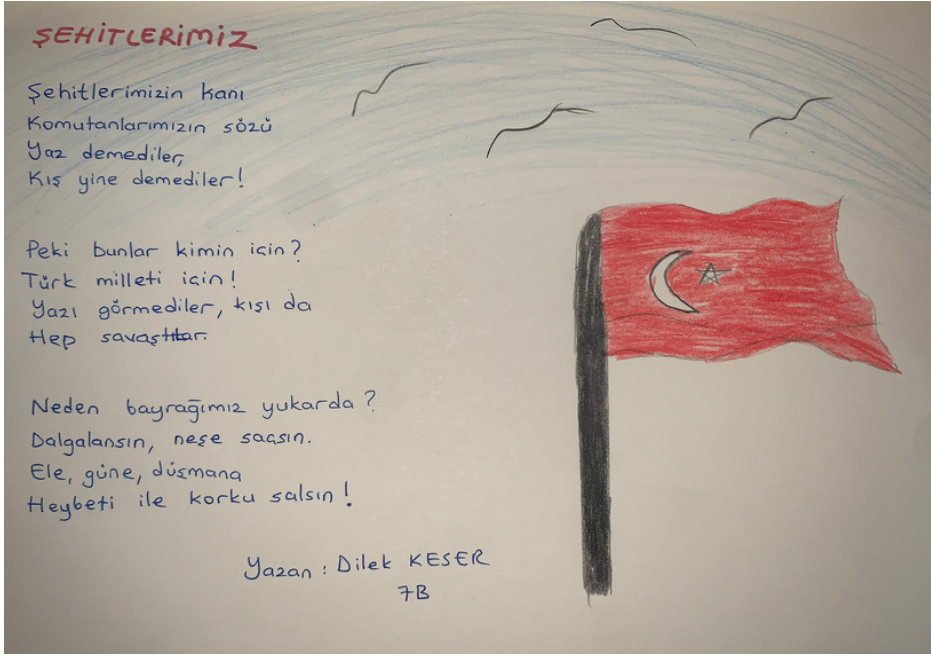 ŞEHİTLERİMİZ
Şehitlerimizin kanı
Komutanlarımızın sözü
Yaz demediler,
Kış yine demediler!
Peki bunlar kimin için?
Türk milleti için!
Yazı görmediler, kışı da
Hep savaştılar.
Neden bayrağımız yukarda?
Dalgalansın, neşe saçsın.
Ele, güne, düşmana
Heybeti ile korku salsın!
Yazan: Dilek KESER
7B